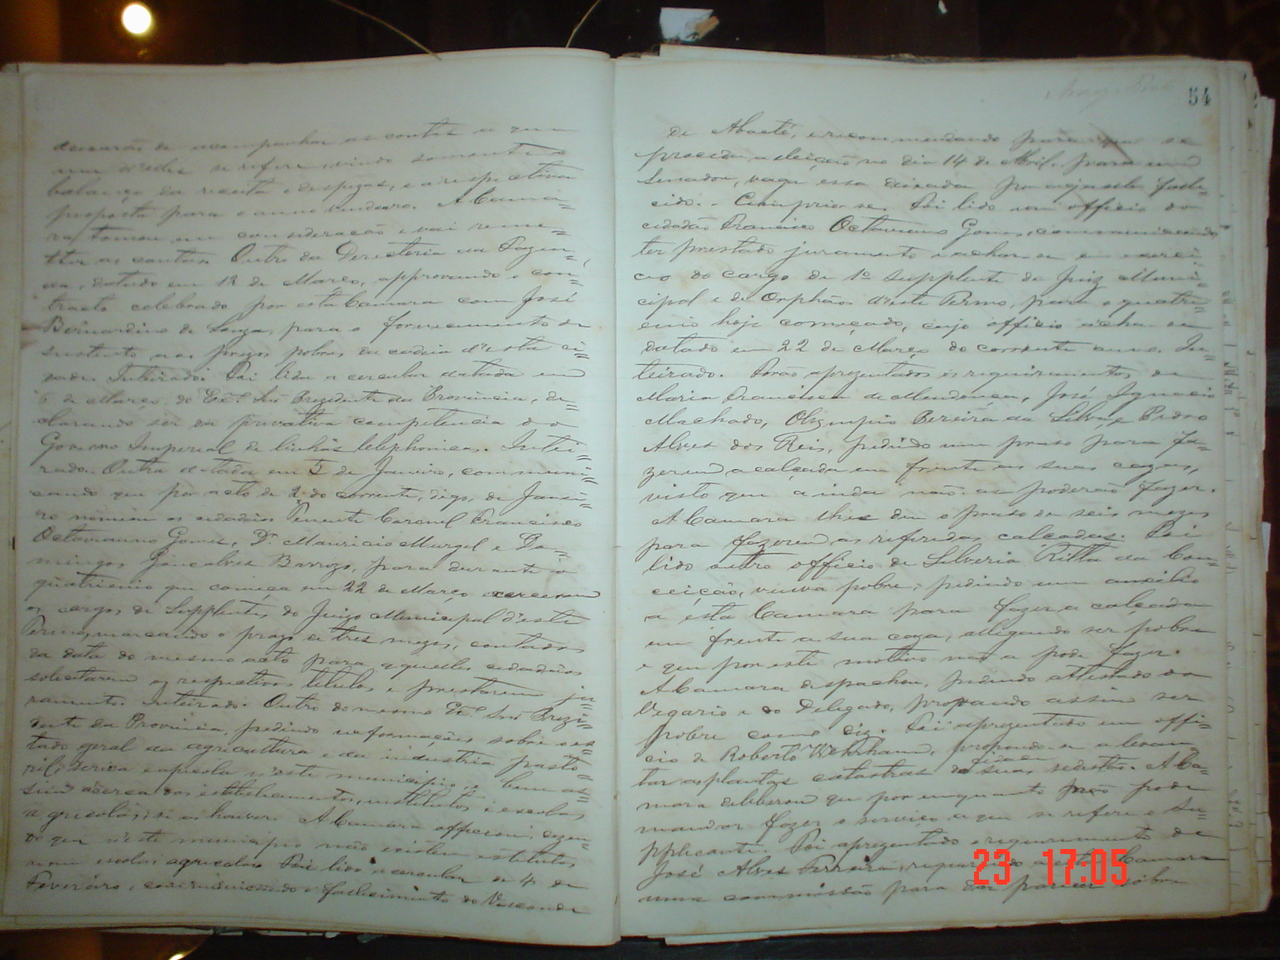 deixarão de acompanhar as contas a que
uma ordem se refere, vindo somente o
balanço da receita e despezas, e a respectiva
proposta para o anno vindouro. A Cama=
ra tomou em consideração e vai reme=
tter as contas. Outro da Directoria da Fazen=
da, datado em 12 de Março, approvando o con=
tracto celebrado por esta Camara com José
Bernardino de Souza, para o fornecimento de
sustento aos prezos pobres da cadeia d'esta ci=
dade. Inteirado. Foi lida a circular datada em
5 de Março, do Exº Snr Prezidente da Provincia, de=
clarando ser da privativa competencia do
Governo Imperial as linhas telephonicas. Intei=
rado. Outra datada em 5 de Janeiro, communi=
cando que por acto de 2 do corrente, digo, de Janei=
ro nomiou os cidadãos Tenente Coronel Francisco
Octavianno Gomes, Dr Mauricio Murgel e Do=
mingos Gonçalves Barrozo, para durante o
quatrienio que começa em 22 de Março exercerem
os cargos de Supplentes do Juizo Municipal d'este
Termo, marcando o prazo de tres mezes, contados
da data do mesmo acto para aquelles cidadãos
solicitarem os respectivos titulos e prestarem ju=
ramento. Inteirado. Outro do mesmo Exº Snr Prezi=
dente da Provincia, pedindo informações sobre o es=
tado geral da agricultura e da industria pasto=
ril, serica e apicola n'este municipio, e bem as=
sim acerca dos estabelecimentos, institutos e escolas
agricolas, si os houver. A Camara officiou, dizen=
do que n'este municipio não existem institutos
nem escolas agricolas. Foi lida a circular de 4 de
Fevereiro, communicando o fallecimento do Visconde
54
de Abaeté, e recommendando para que se
proceda a eleição no dia 14 de Abril, para um
Senador, vaga essa deixada por aquelle falle=
cido. Cumpra-se. Foi lido um officio do
cidadão Francisco Octavianno Gomes, communicando
ter prestado juramento e achar-se em exerci=
cio do cargo de 1º Supplente do Juiz Muni=
cipal e de Orphãos d'este Termo, para o quatri=
enio hoje começado, cujo officio acha-se
datado em 22 de Março do corrente anno. In=
teirado. Forão aprezentados os requirimentos, de
Maria Francisca de Mendonça, José Ignacio
Machado, Olympio Pereira da Silva, e Pedro
Alves dos Reis, pedindo um prazo para fa=
zerem a calçada em frente as suas cazas,
visto que ainda não as poderão fazer.
A Camara lhes deu o prazo de seis mezes
para fazerem as referidas calçadas. Foi
lido outro officio de Silveria Ritta da Con=
ceição, viuva pobre, pedindo um auxilio
a esta Camara para fazer a calçada
em frente a sua caza, allegando ser pobre
e que por este motivo não a pode fazer.
A Camara despachou, pedindo attestado do
Vigario e do Delegado, provando assim ser
pobre como diz. Foi aprezentado um offi=
cio de Roberto propondo-se a levan=
tar as plantas cadastraes de suas A Ca=
mara deliberou que por emquanto não pode
mandar fazer o serviço a que se refere o Su=
pplicante. Foi aprezentado o requerimento de
José Alves Ferreira, requerendo a esta Camara
uma commissão para dar parecer sobre
23 17:05